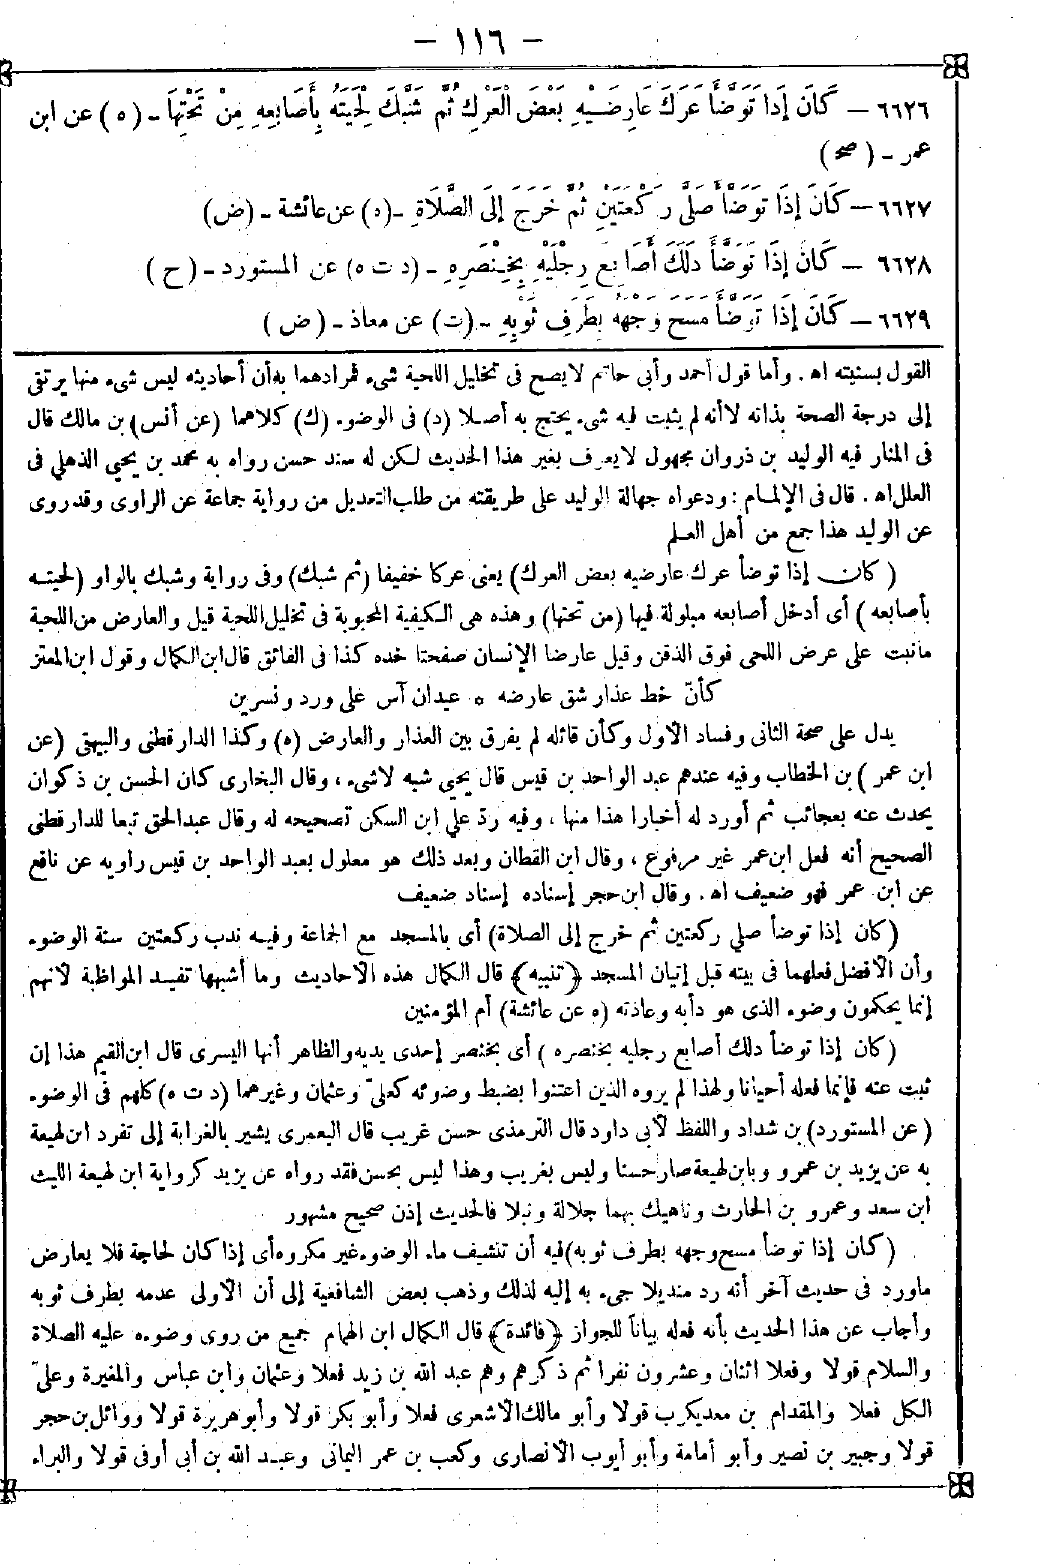 - ١١٦ -
٦٦٢٦ - كَانَ إِذَا تَوَضَّأَ عَرَكَ عَارِضَيْهِ بَعْضَ الْعَرْكِ ثُمَّ شَبَّكَ لِحْيَتَهُ بِأَصَابِعِهِ مِنْ تَحْتِهَا - (ه) عن ابن
عمر - (صح)
٦٦٢٧ - كَانَ إِذَا تَوَضَّأَ صَلَّى رَكْعَتَيْنِ ثُمَّ خَرَجَ إِلَى الصَّلَاةِ - (ه) عن عائشة - (ض)
٦٦٢٨ - كَانَ إِذَا تَوَضَّأَ دَلَكَ أَصَابِعَ رِجْلَيْهِ بِخِنْصَرِهِ - (د ت ه) عن المستورد - (ح)
٦٦٢٩ - كَانَ إِذَا تَوَضَّأَ مَسَحَ وَجْهَهُ بِطَرَفِ ثَوْبِهِ - (ت) عن معاذ - (ض)
القول بسنيته اه. وأما قول أحمد وأبي حاتم لايصح فى تخليل اللحية شىء فمرادهما به أن أحاديثه ليس شىء منها يرتقى
إلى درجة الصحة بذاته لاأنه لم يثبت فيه شىء يحتج به أصلا (د) فى الوضوء (ك) كلاهما (عن أنس) بن مالك قال
فى المنار فيه الوليد بن ذروان مجهول لايعرف بغير هذا الحديث لكن له سند حسن رواه به محمد بن يحيي الذهلي فى
العلل اه. قال فى الإلمام: ودعواه جهالة الوليد على طريقته من طلب التعديل من رواية جماعة عن الراوى وقد روى
عن الوليد هذا جمع من أهل العلم
(كان إذا توضأ عرك عارضيه بعض العرك) يعنى عركا خفيفا (ثم شبك) وفى رواية وشبك بالواو (لحيته
بأصابعه) أى أدخل أصابعه مبلولة فيها (من تحتها) وهذه هى الكيفية المحبوبة فى تخليل اللحية قيل والعارض من اللحية
مانبت على عرض اللحى فوق الذقن وقيل عارضا الإنسان صفحتا خده كذا فى الفائق قال ابن الكمال وقول ابن المعتز
كأنّ خط عذار شق عارضه * عيدان آس على ورد ونسرين
يدل على صحة الثانى وفساد الأول وكأن قائله لم يفرق بين العذار والعارض (ه) وكذا الدارقطنى والبيهقى (عن
ابن عمر) بن الخطاب وفيه عندهم عبد الواحد بن قيس قال يحيي شبه لاشىء، وقال البخارى كان الحسن بن ذكوان
يحدث عنه بعجائب ثم أورد له أخبارا هذا منها، وفيه ردّ على ابن السكن تصحيحه له وقال عبدالحق تبعا للدارقطنى
الصحيح أنه فعل ابن عمر غير مرفوع، وقال ابن القطان وبعد ذلك هو معلول بعبد الواحد بن قيس راويه عن نافع
عن ابن عمر فهو ضعيف اه. وقال ابن حجر إسناده إسناد ضعيف
(كان إذا توضأ صلى ركعتين ثم خرج إلى الصلاة) أى بالمسجد مع الجماعة وفيه ندب ركعتين سنة الوضوء
وأن الأفضل فعلهما فى بيته قبل إتيان المسجد ﴿تنبيه﴾ قال الكمال هذه الأحاديث وما أشبهها تفيد المواظبة لأنهم
إنما يحكمون وضوء الذى هو دأبه وعادته (ه عن عائشة) أم المؤمنين
(كان إذا توضأ دلك أصابع رجليه بخنصره) أى بخنصر إحدى يديه والظاهر أنها اليسرى قال ابن القيم هذا إن
ثبت عنه فإنما فعله أحيانا ولهذا لم يروه الذين اعتنوا بضبط وضوئه كعلىّ وعثمان وغيرهما (د ت ه) كلهم فى الوضوء
(عن المستورد) بن شداد واللفظ لأبى داود قال الترمذى حسن غريب قال اليعمرى يشير بالغرابة إلى تفرد ابن لهيعة
به عن يزيد بن عمرو وبابن لهيعة صار حسنا وليس بغريب وهذا ليس بحسن فقد رواه عن يزيد كرواية ابن لهيعة الليث
ابن سعد وعمرو بن الحارث وناهيك بهما جلالة ونبلا فالحديث إذن صحيح مشهور
(كان إذا توضأ مسح وجهه بطرف ثوبه) فيه أن تنشيف ماء الوضوء غير مكروه أى إذا كان لحاجة فلا يعارض
ماورد فى حديث آخر أنه رد منديلا جىء به إليه لذلك وذهب بعض الشافعية إلى أن الأولى عدمه بطرف ثوبه
وأجاب عن هذا الحديث بأنه فعله بياناً للجواز ﴿فائدة﴾ قال الكمال ابن الهمام جميع من روى وضوءه عليه الصلاة
والسلام قولا وفعلا اثنان وعشرون نفرا ثم ذكرهم وهم عبد الله بن زيد فعلا وعثمان وابن عباس والمغيرة وعلىّ
الكل فعلا والمقدام بن معديكرب قولا وأبو مالك الأشعرى فعلا وأبو بكر قولا وأبو هريرة قولا ووائل بن حجر
قولا وجبير بن نصير وأبو أمامة وأبو أيوب الأنصارى وكعب بن عمر اليمانى وعبد الله بن أبى أوفى قولا والبراء